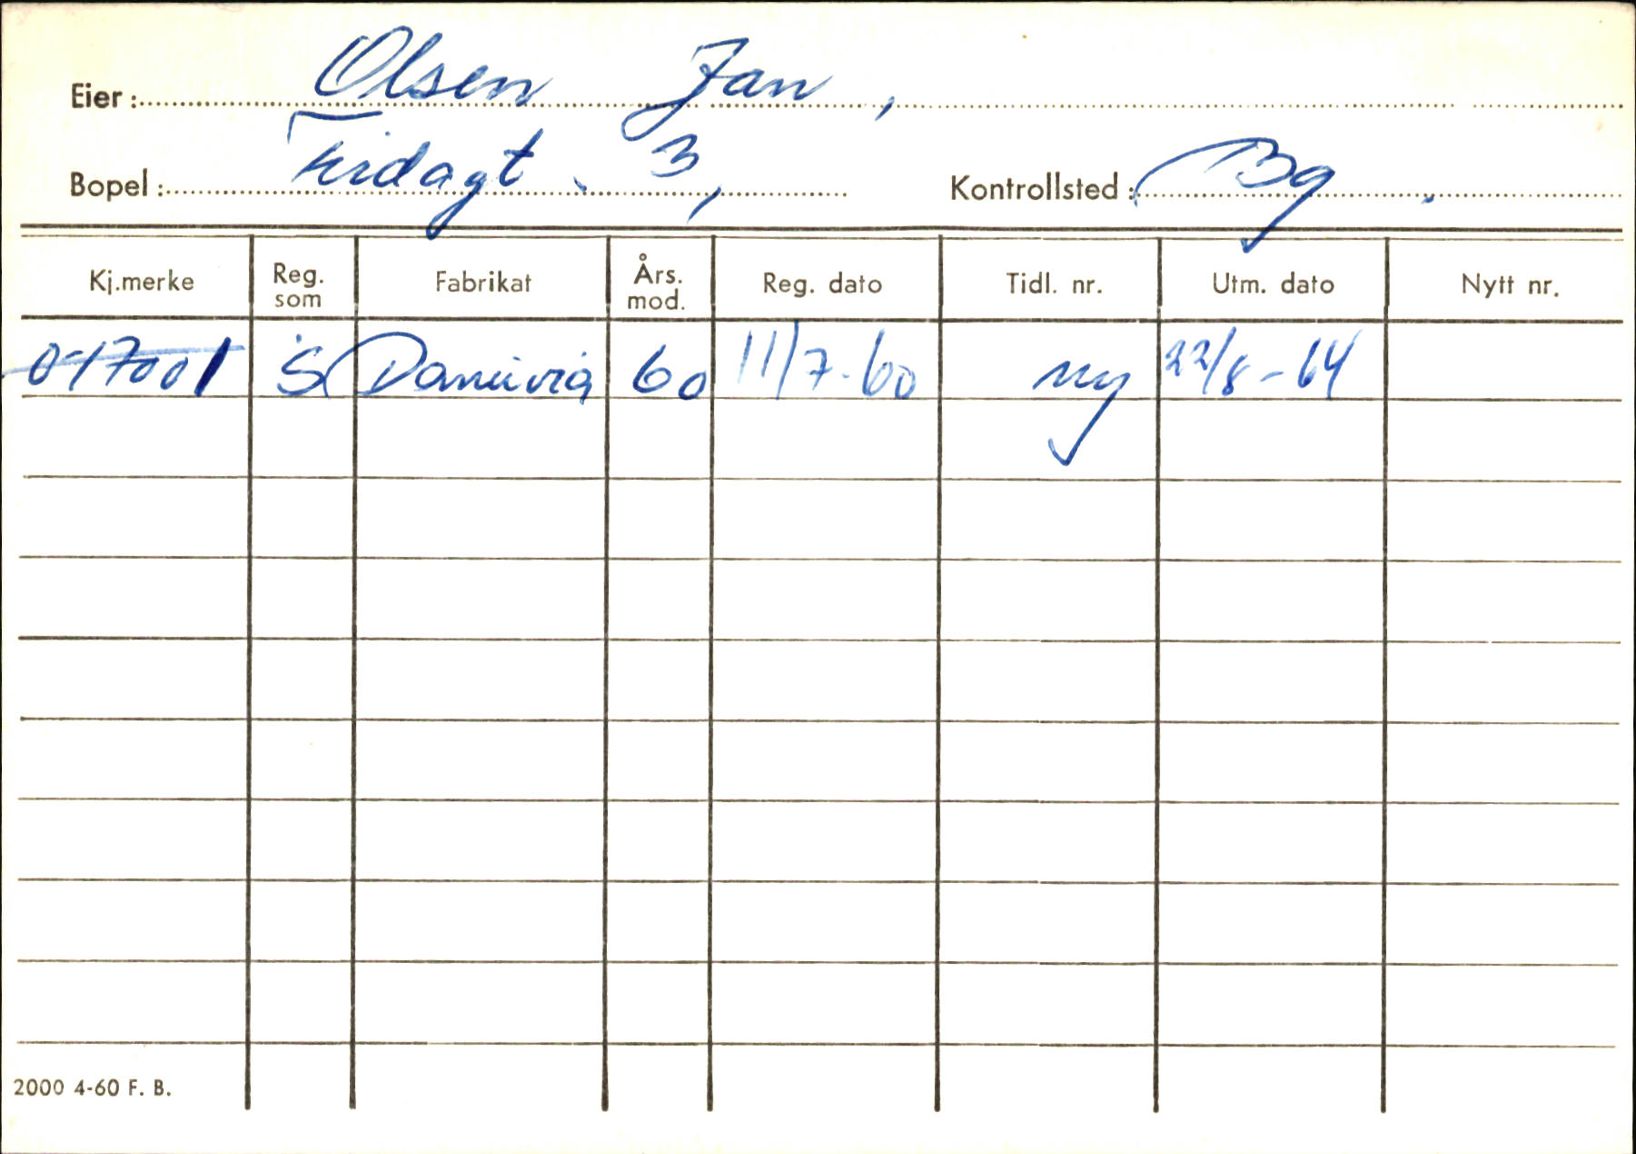 Eier: Olsen Jan,
Bopel: Fridagt. 3, Kontrollsted: Bg.
Kj.merke Reg. som Fabrikat Års. mod. Reg. dato Tidl. nr. Utm. dato Nytt nr.
O-17001 S Danuvia 60 11/7-60 ny 22/8-64
2000 4-60 F. B.